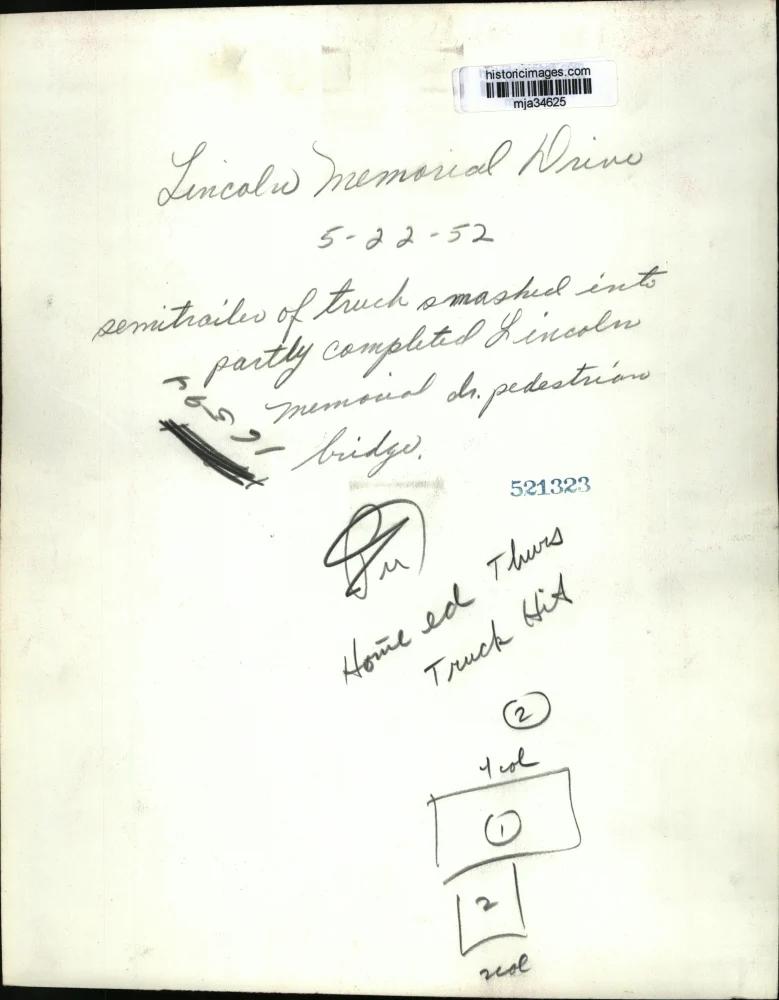 historicimages.com
mja34625
Lincoln Memorial Drive
5-22-52
semitrailer of truck smashed into
partly completed Lincoln
memorial dr. pedestrian
bridge.
521323
Home ed Thurs
Truck Hit
2
4 col
1
2
2 col